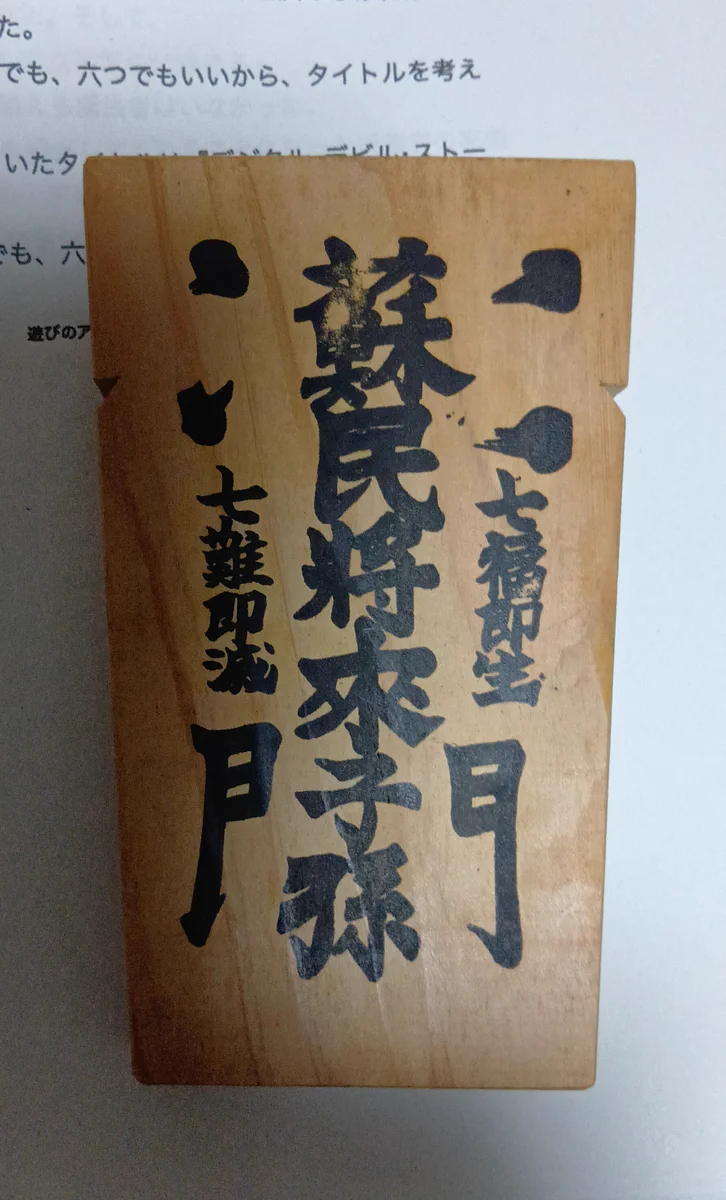 た。
でも、六つでもいいから、タイトルを考え
いたタイトルは『デジタル・デビル・ストー
でも、六
遊びのア
七福即生
蘇民將來子孫
七難即滅
門